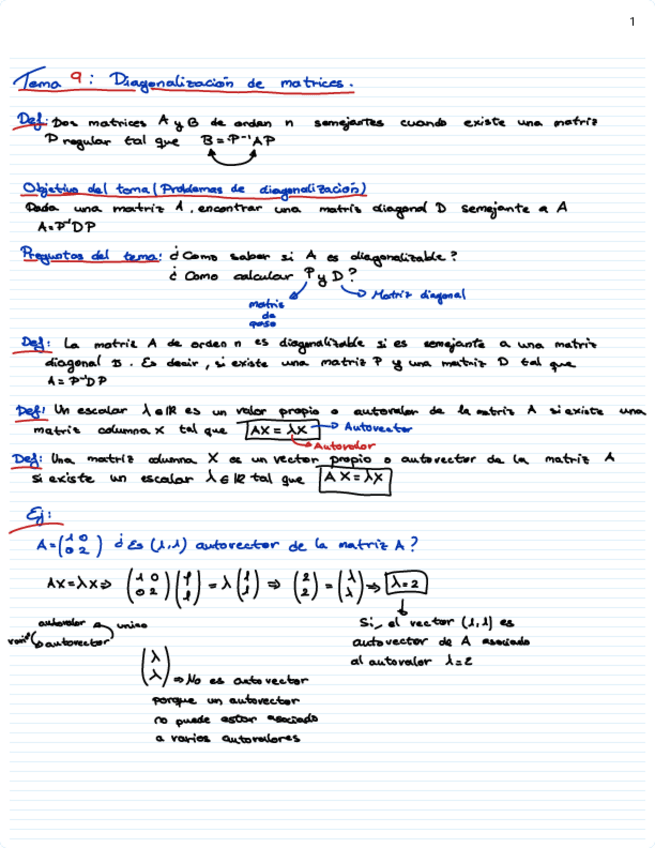 1
Tema 9: Diagonalización de matrices.
Def: Dos matrices A y B de orden n semejantes cuando existe una matriz
P regular tal que B = P⁻¹AP
Objetivo del tema (Problemas de diagonalización)
Dada una matriz A, encontrar una matriz diagonal D semejante a A
A = P⁻¹DP
Preguntas del tema: ¿Como saber si A es diagonalizable?
¿Como calcular P y D?
matriz
de
paso
Matriz diagonal
Def: La matriz A de orden n es diagonalizable si es semejante a una matriz
diagonal D. Es decir, si existe una matriz P y una matriz D tal que
A = P⁻¹DP
Def: Un escalar λ∈ℝ es un valor propio o autovalor de la matriz A si existe una
matriz columna X tal que AX = λX → Autovector
→ Autovalor
Def: Una matriz columna X es un vector propio o autovector de la matriz A
si existe un escalar λ∈ℝ tal que AX = λX
Ej:
A = (1 0 / 0 2) ¿Es (1,1) autovector de la matriz A?
AX = λX ⇒ (1 0 / 0 2)(1 / 1) = λ(1 / 1) ⇒ (2 / 2) = (λ / λ) ⇒ λ = 2
autovalor único
autovector
Si, el vector (1,1) es
autovector de A asociado
al autovalor λ=2
(λ / λ) ⇒ No es autovector
porque un autovector
no puede estar asociado
a varios autovalores